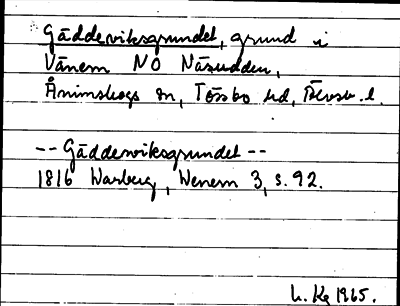 Gäddeviksgrundet, grund i
Vänern NO Näsudden,
Ånimskogs sn, Tössbo hd, Älvsb. l.
-- Gäddewiksgrundet --
1816 Warberg, Wenern 3, s. 92.
L. Kg 1965.